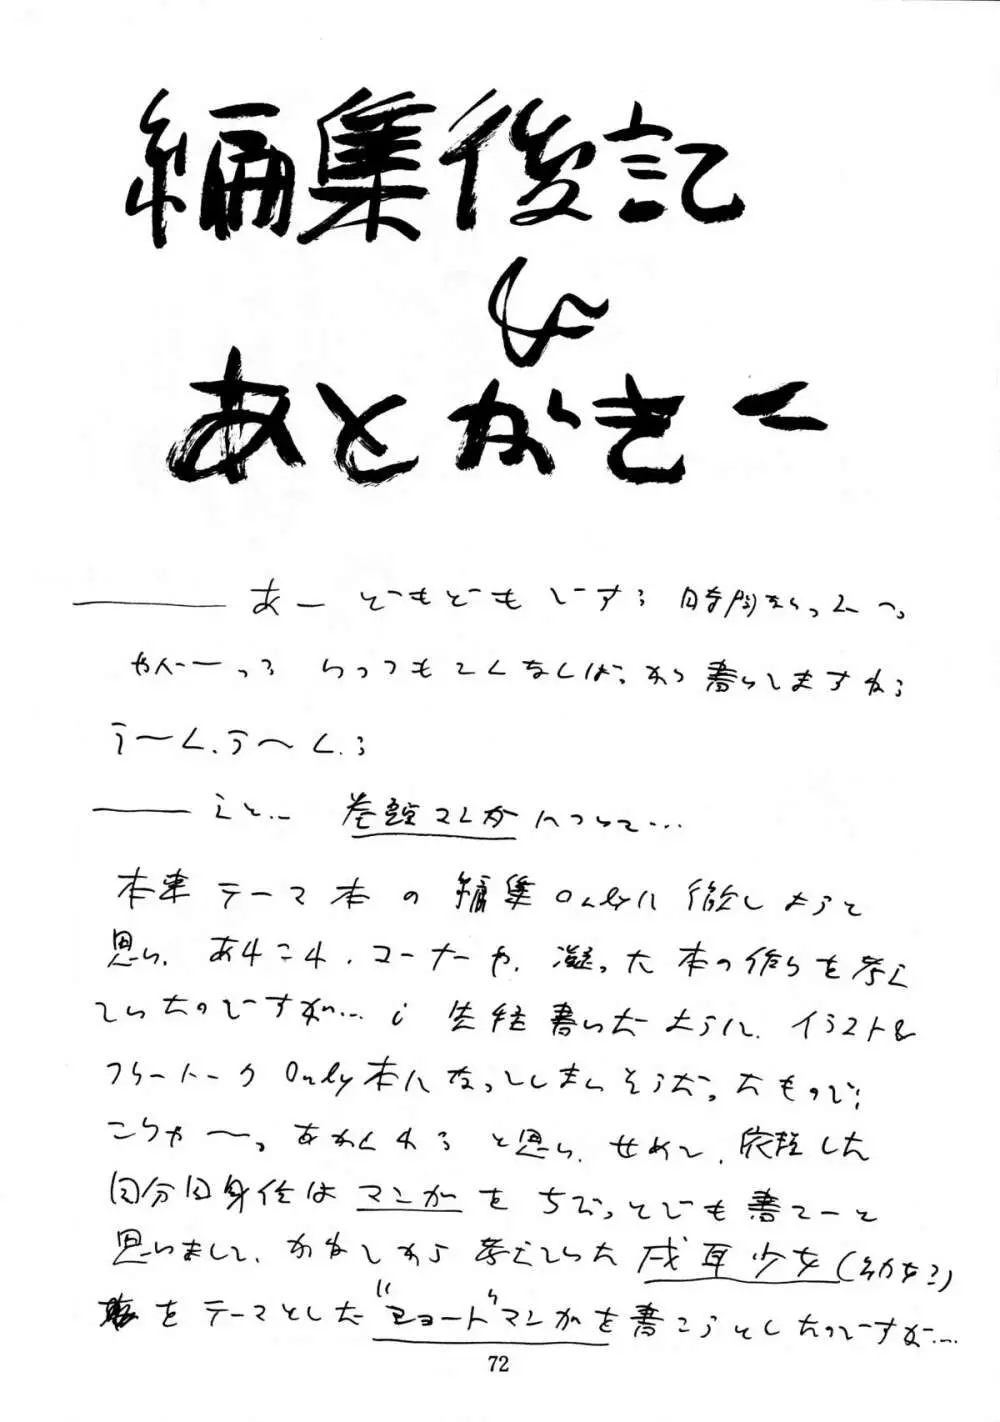 編集後記
&
あとがきー
あー どもどもでーす; 時間ねーっスーっ。
やべーっ; いつもこくなしば、から書いてますね;
うーん、うーん;
えと… 巻頭マンガについて…
本来テーマ本の編集Onlyに徹しようと
思い、あれこれ、コーナーや、凝った本の作りを考え
ていたのですが…; 先程書いたように、イラスト&
フリートークOnly本になってしまいそうだったもので;
こりゃ〜っ。あかんわ; と思い、せめて、依頼した
自分自身位はマンガをちびっとでも書こーと
思いまして、かねてから考えていた戌耳少女(幼女?)
をテーマとした"ショート"マンガを書こうとしたのですが…
72